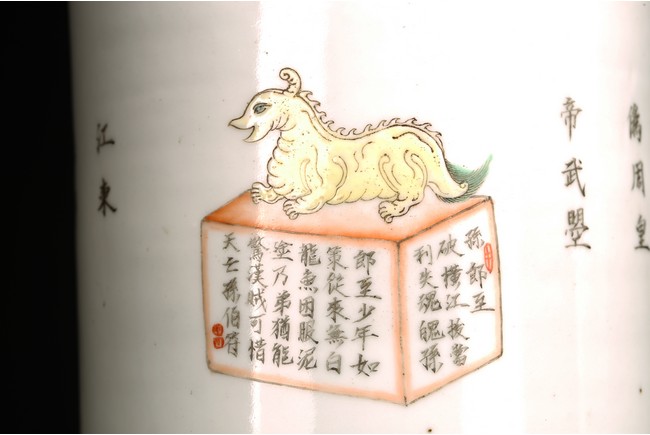 偽周皇
帝武曌
孫郎至
破橫江拔當
利失魂魄孫
郎至少年如
策從來無白
龍魚困服泥
塗乃弟猶能
驚漢賊可惜
天亡孫伯符
江東